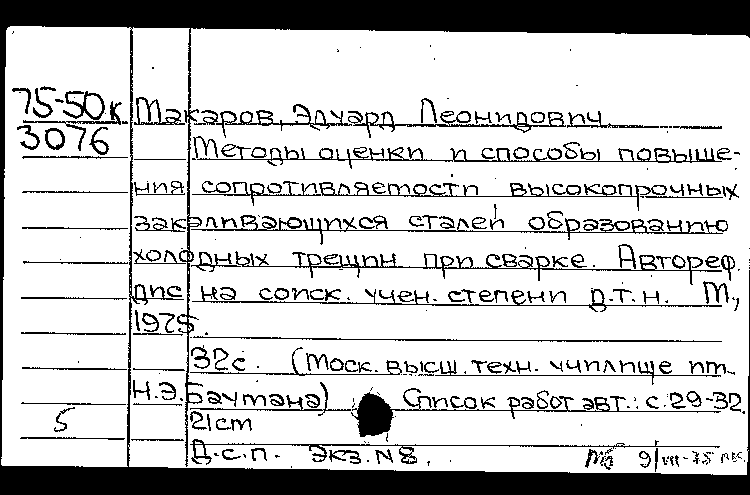 75-50к Макаров, Эдуард Леонидович
3076
Методы оценки и способы повыше-
ния сопротивляемости высокопрочных
закаливающихся сталей образованию
холодных трещин при сварке. Автореф.
дис на соиск. учен. степени д.т.н. М.,
1975.
32с. (Моск. высш. техн. училище им.
Н.Э.Баумана) Список работ авт.: с.29-32
5 21см
Д.с.п. Экз.N8.
9/VII-75